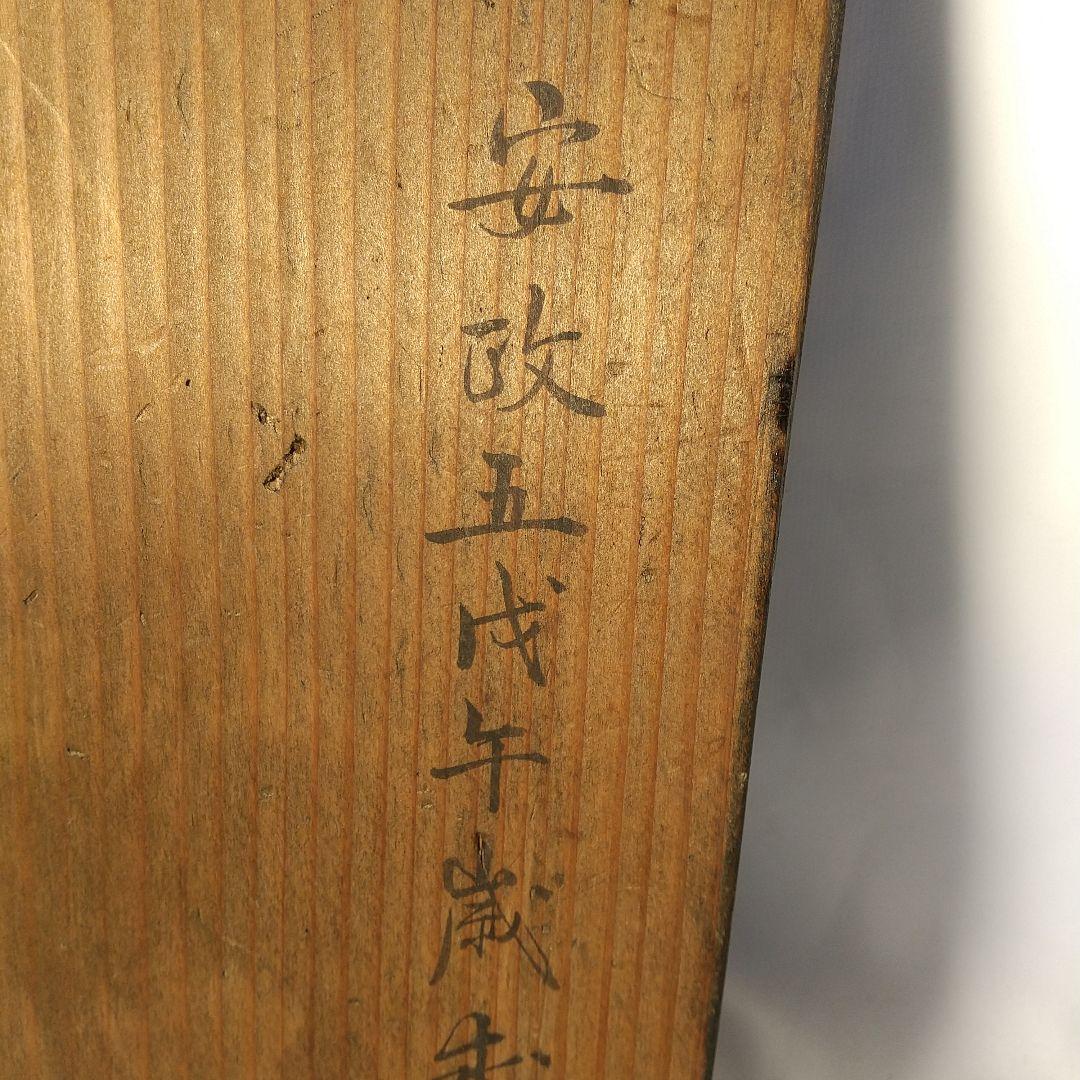 安政五戊午歳